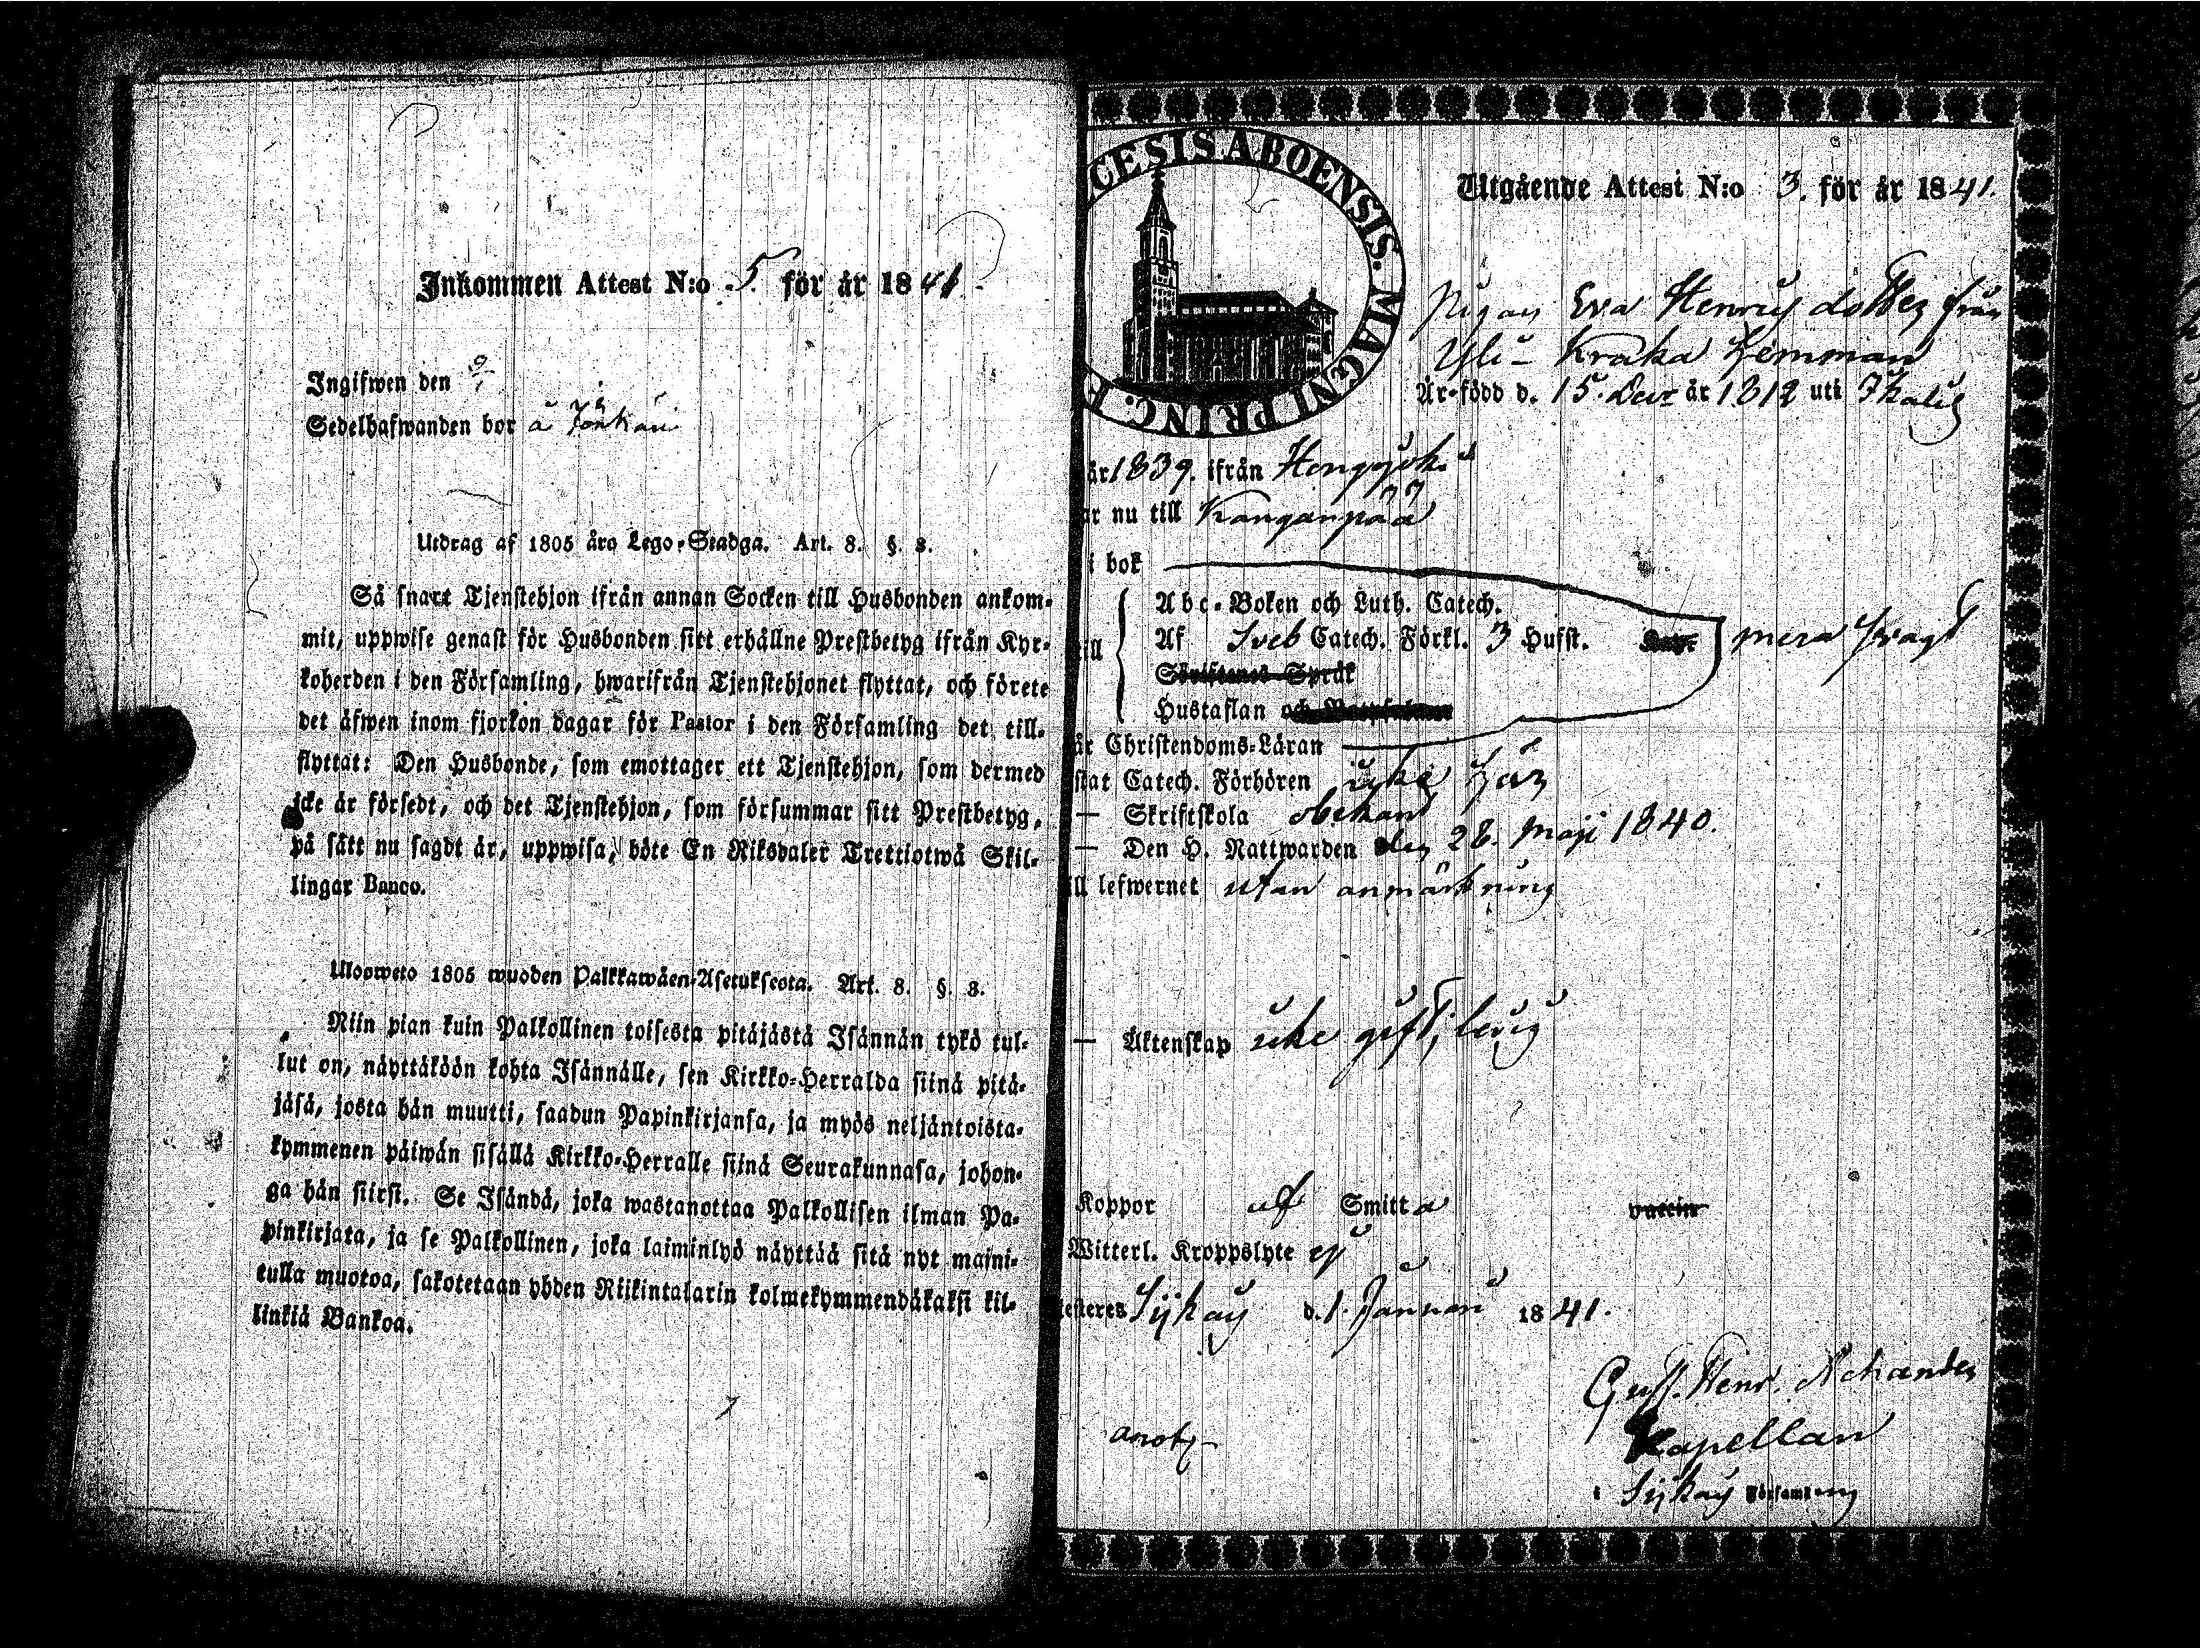 Inkommen Attest N:o 5 för år 1841.
Ingifwen den 9/1
Sedelhafwanden bor å
Utdrag af 1805 års Lego-Stadga. Art. 8. §. 3.
Så snart Tjenstehjon ifrån annan Socken till Husbonden ankom-
mit, uppwise genast för Husbonden sitt erhållne Prestbetyg ifrån Kyr-
koherden i den Församling, hwarifrån Tjenstehjonet flyttat, och förete
det äfwen inom fjorton dagar för Pastor i den Församling det till-
flyttat: Den Husbonde, som emottager ett Tjenstehjon, som dermed
icke är försedt, och det Tjenstehjon, som försummar sitt Prestbetyg,
på sätt nu sagdt är, uppwisa, böte En Riksdaler Trettiotwå Skil-
lingar Banco.
Ulosweto 1805 wuoden Palkkawäen-Asetuksesta. Art. 8. §. 3.
Niin pian kuin Palkollinen toisesta pitäjästä Isännän tykö tul-
lut on, näyttäköön kohta Isännälle, sen Kirkko-Herralda siinä pitä-
jäsä, josta hän muutti, saadun Papinkirjansa, ja myös neljäntoista-
kymmenen päiwän sisällä Kirkko-Herralle siinä Seurakunnasa, johon-
ga hän siirsi. Se Isändä, joka wastanottaa Palkollisen ilman Pa-
pinkirjata, ja se Palkollinen, joka laiminlyö näyttää sitä nyt maini-
tulla muotoa, sakotetaan yhden Riikintalarin kolmekymmendäkaksi kil-
linkiä Bankoa.
CESIS ABOENSIS. MAGNI PRINC. F
Utgående Attest N:o 3. för år 1841.
Pigan Eva Henricsdotter från
Yli-Kraka hemman
Är född d. 15. Decr år 1812 uti Ikalis
år 1839. ifrån Hongojoki
ar nu till Kanganpää
i bok
Abc-Boken och Luth. Catech.
till Af Sveb Catech. Förkl. 3 Hufst. mera svagt
Skriftenes Språk
Hustaflan
är Christendoms-Läran
stat Catech. Förhören icke här
— Skriftskola obekant
— Den H. Nattwarden den 28. Maji 1840.
ill lefwernet utan anmärkning
— Äktenskap icke gift, ledig
Koppor af Smitta vaccin
Witterl. Kroppslyte ej
testeres Sijkais d. 1. Januari 1841.
Gust. Henr.
Kapellan
i Sijkais Församling